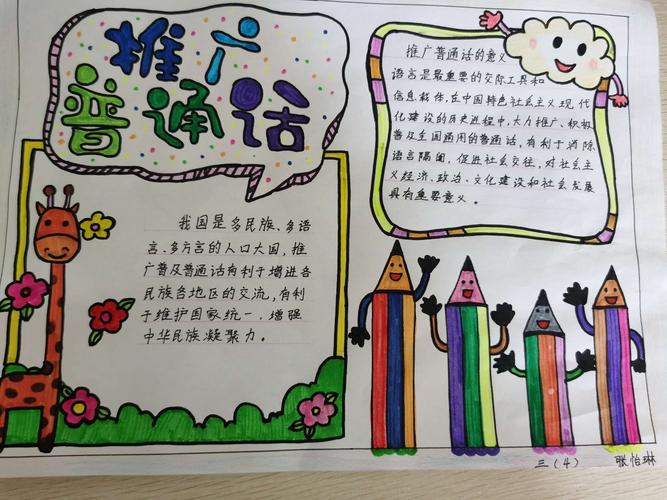 推广
普通话
我国是多民族、多语
言、多方言的人口大国,推
广普及普通话有利于增进各
民族各地区的交流,有利
于维护国家统一,增强
中华民族凝聚力。
推广普通话的意义
语言是最重要的交际工具和
信息载体,在中国特色社会主义现代
化建设的历史进程中,大力推广、积极
普及全国通用的普通话,有利于消除
语言隔阂,促进社会交往,对社会主
义经济、政治、文化建设和社会发展
具有重要意义。
三(4) 张怡琳